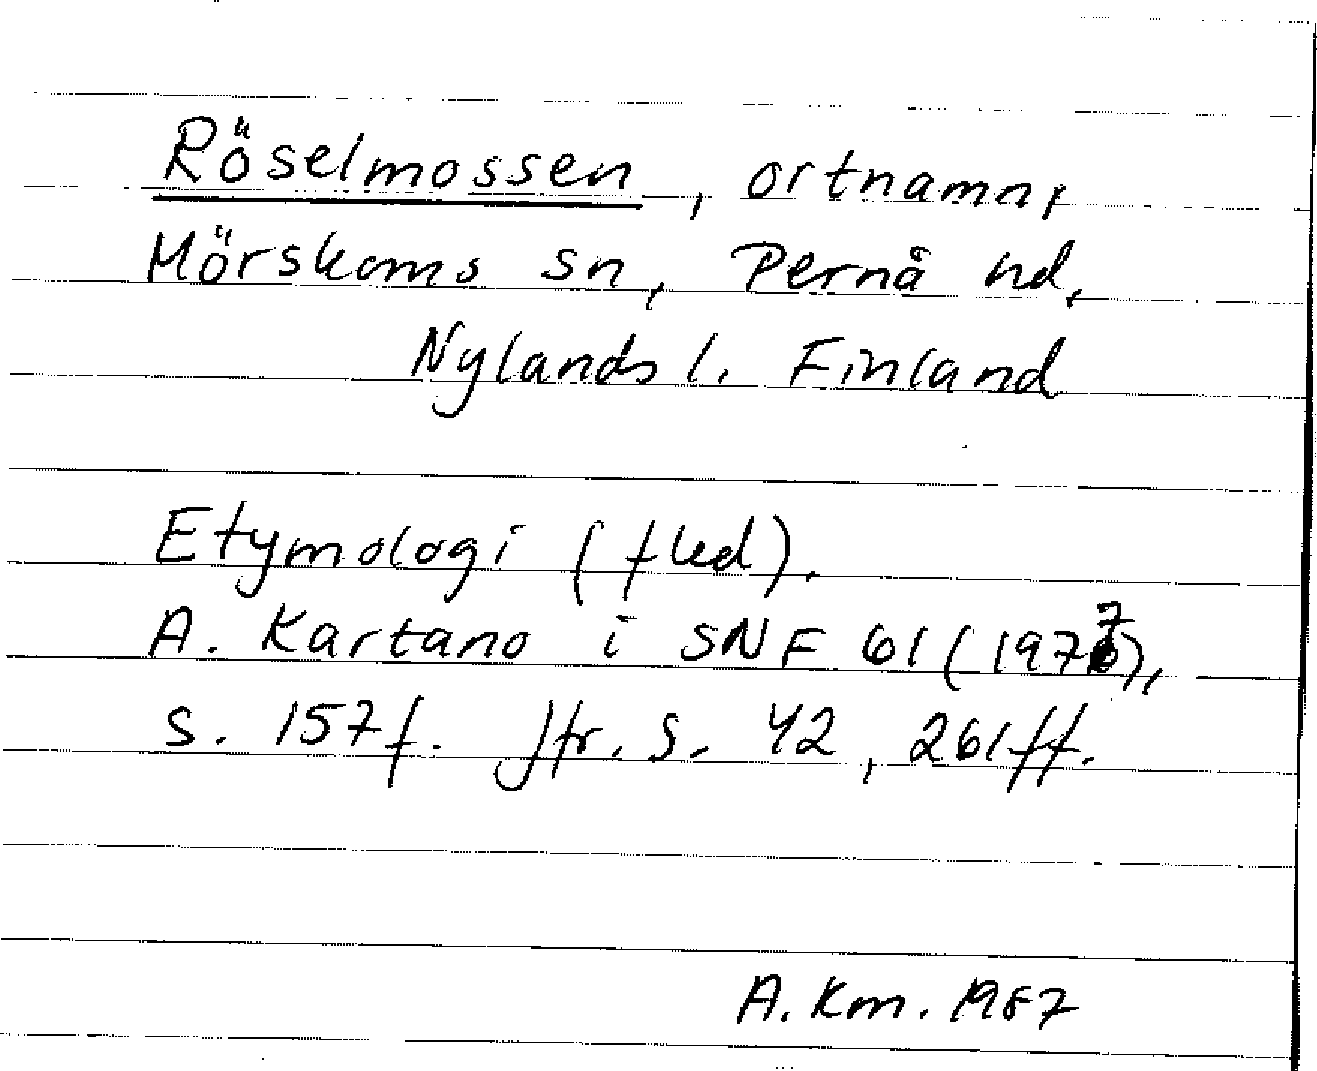 Röselmossen, ortnamn,
Mörskoms sn, Pernå hd,
Nylands l. Finland
Etymologi (fled).
A. Kartano i SNF 61 (1977),
s. 157f. Jfr. s. 42, 261ff.
A. Km. 1987